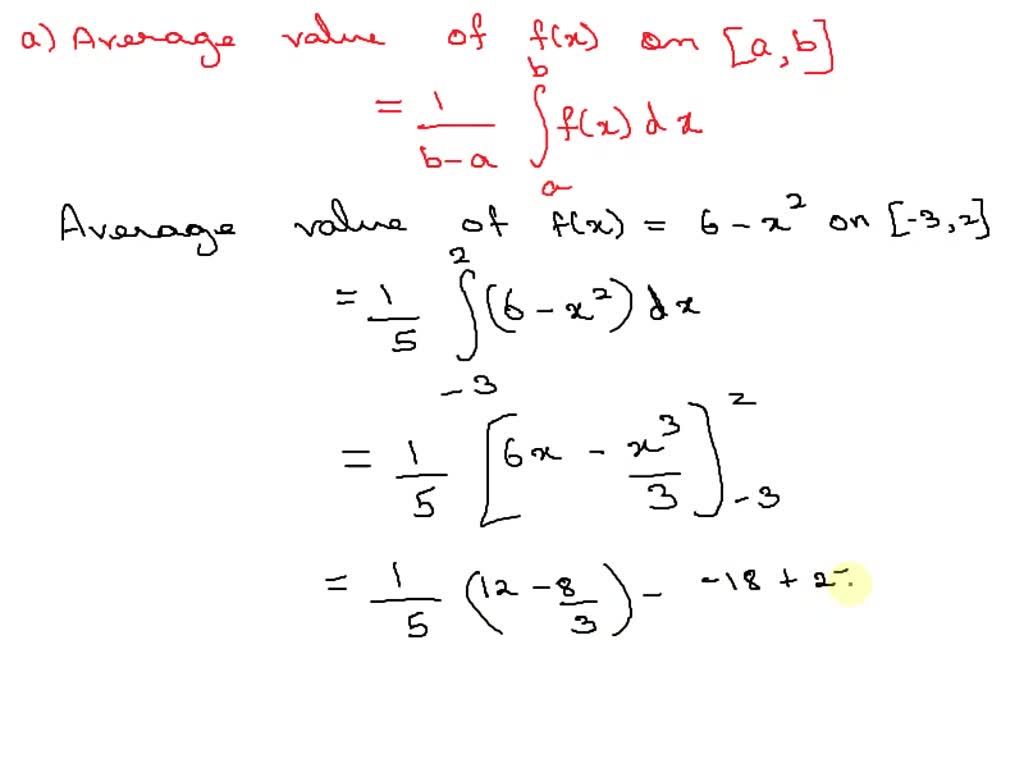 a) Average value of f(x) on [a, b]
= 1/(b-a) ∫_a^b f(x) dx
Average value of f(x) = 6 - x² on [-3, 2]
= 1/5 ∫_{-3}^{2} (6 - x²) dx
= 1/5 [6x - x³/3]_{-3}^{2}
= 1/5 (12 - 8/3) - -18 + 2